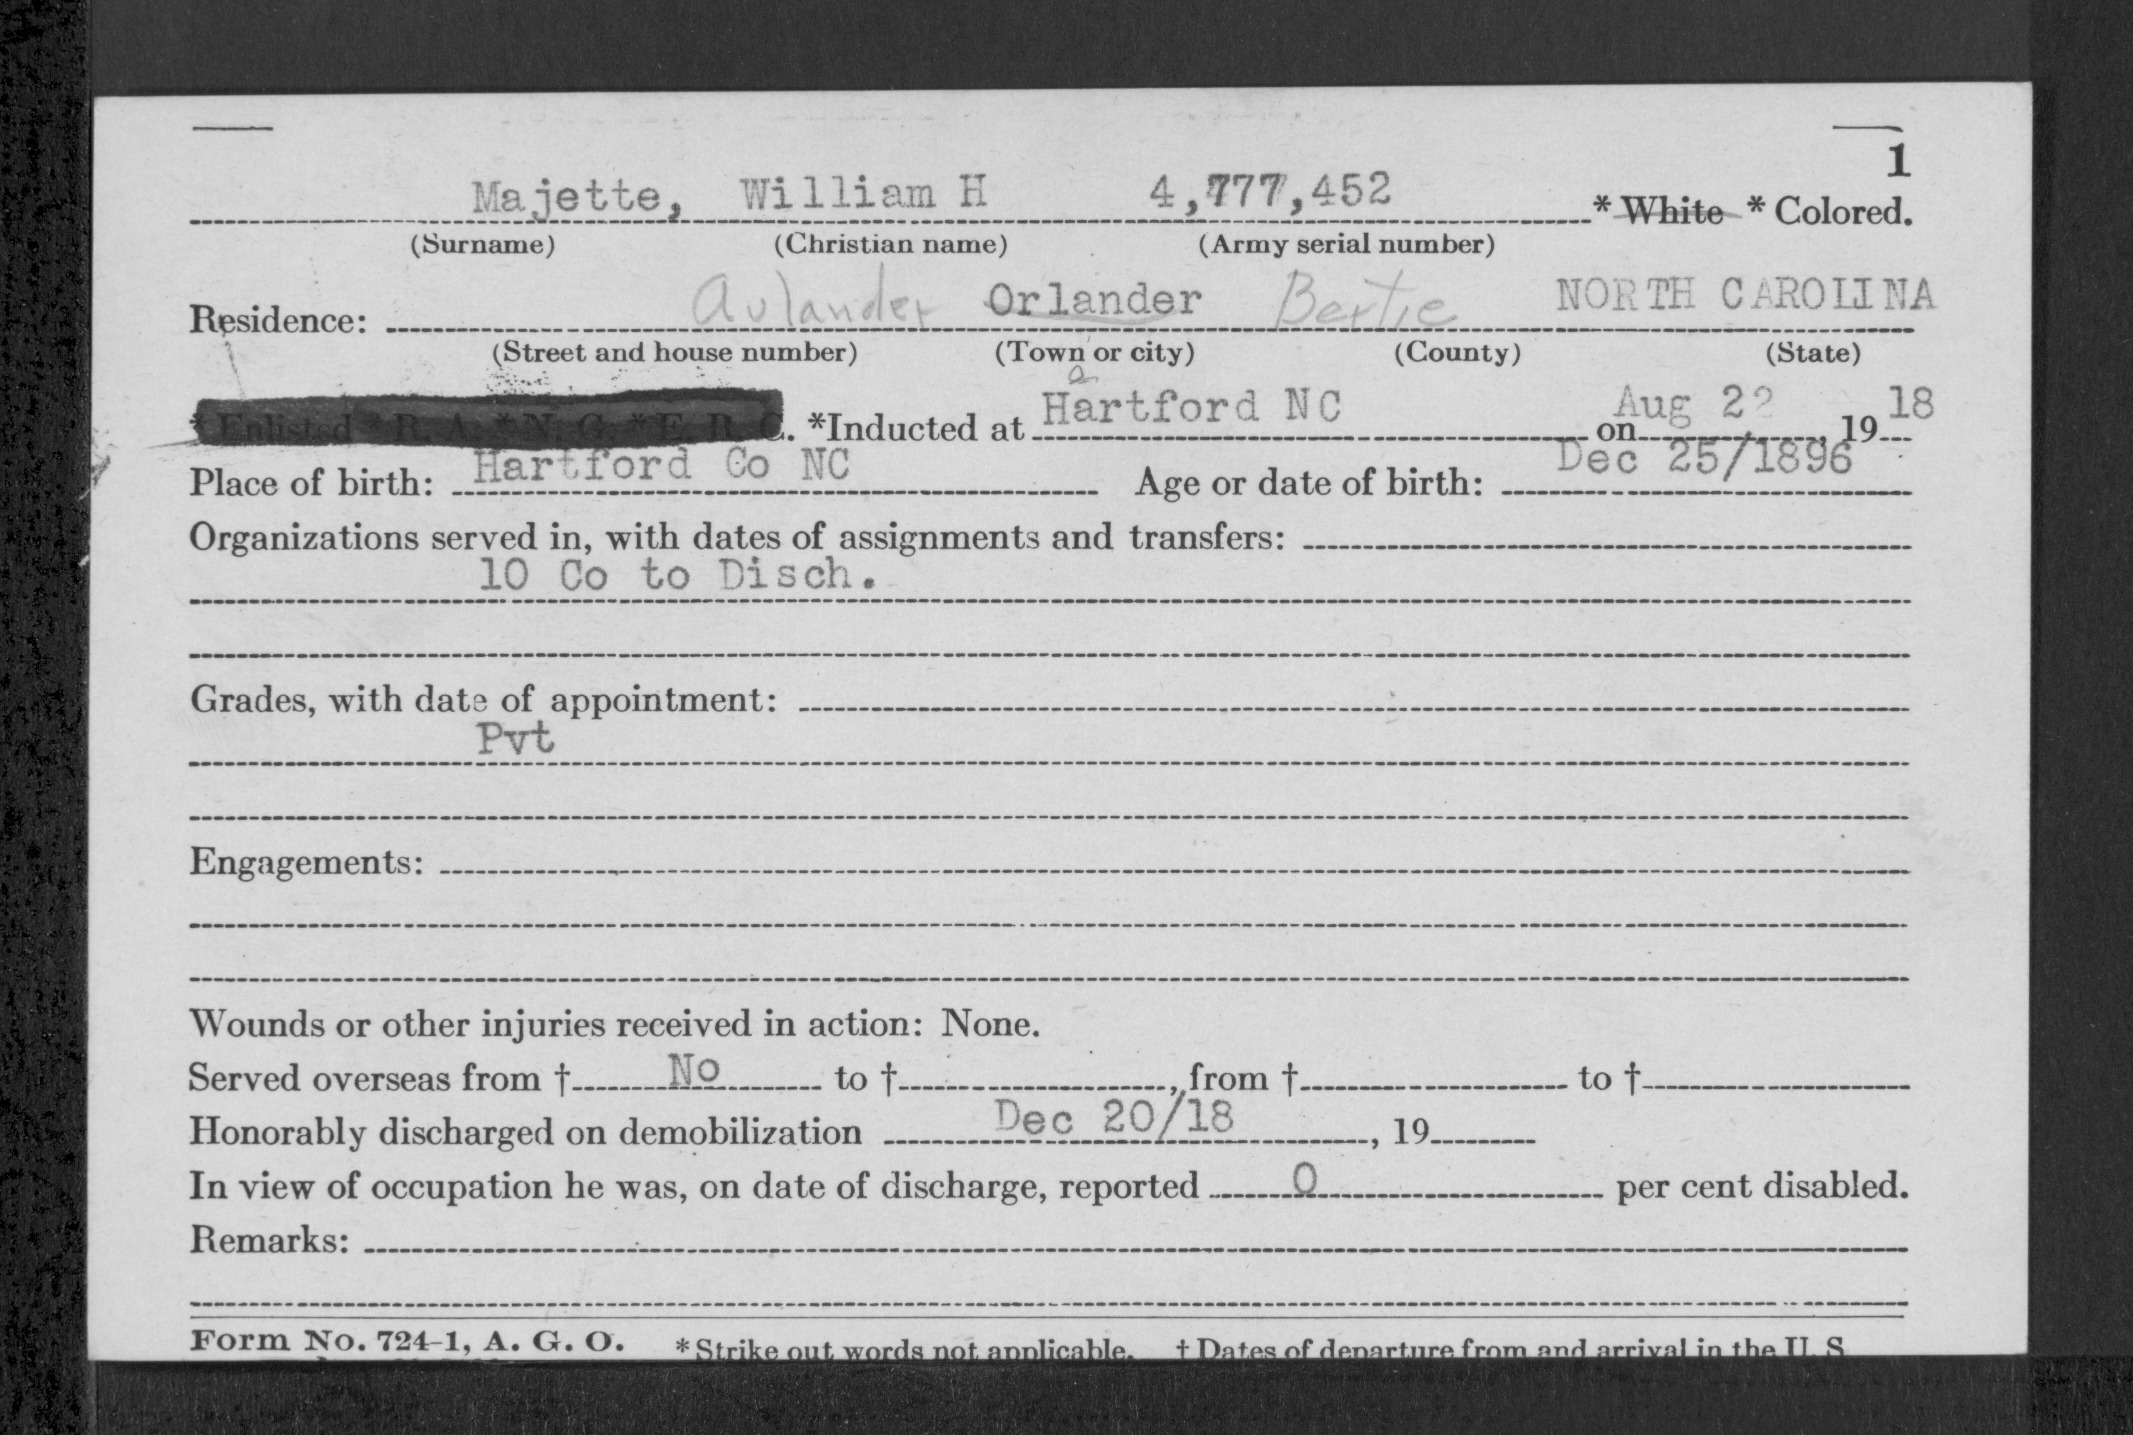 1
Majette, William H 4,777,452 * White * Colored.
(Surname) (Christian name) (Army serial number)
Residence: Aulander Orlander Bertie NORTH CAROLINA
(Street and house number) (Town or city) (County) (State)
a
* Enlisted * R. A. * N. G. * E. R. C. *Inducted at Hartford NC on Aug 22, 19 18
Place of birth: Hartford Co NC Age or date of birth: Dec 25/1896
Organizations served in, with dates of assignments and transfers:
10 Co to Disch.
Grades, with date of appointment:
Pvt
Engagements:
Wounds or other injuries received in action: None.
Served overseas from † No to †, from † to †
Honorably discharged on demobilization Dec 20/18, 19
In view of occupation he was, on date of discharge, reported 0 per cent disabled.
Remarks:
Form No. 724-1, A. G. O. * Strike out words not applicable. † Dates of departure from and arrival in the U. S